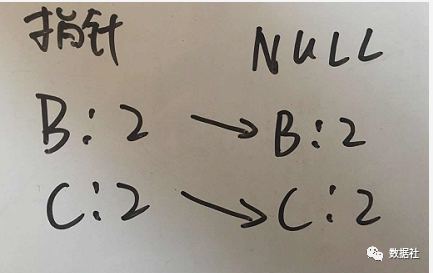 指针 NULL
B:2 → B:2
C:2 → C:2
数据社